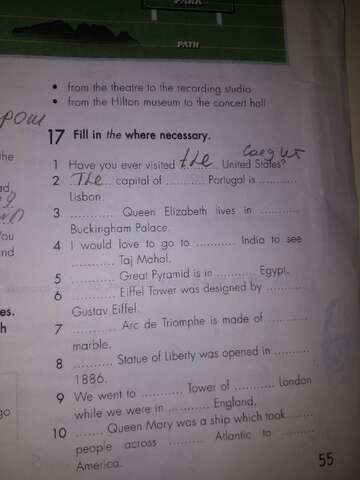 PARK
PATH
• from the theatre to the recording studio
• from the Hilton museum to the concert hall
17 Fill in the where necessary.
1 Have you ever visited the United States?
2 The capital of .......... Portugal is ..........
Lisbon.
3 ............ Queen Elizabeth lives in ..........
Buckingham Palace.
4 I would love to go to .......... India to see
............ Taj Mahol.
5 ............ Great Pyramid is in .......... Egypt.
6 ............ Eiffel Tower was designed by ..........
Gustav Eiffel.
7 ............ Arc de Triomphe is made of ..........
marble.
8 ............ Statue of Liberty was opened in ..........
1886.
9 We went to .......... Tower of .......... London
while we were in .......... England.
10 ........ Queen Mary was a ship which took ........
people across .......... Atlantic to ..........
America.
55